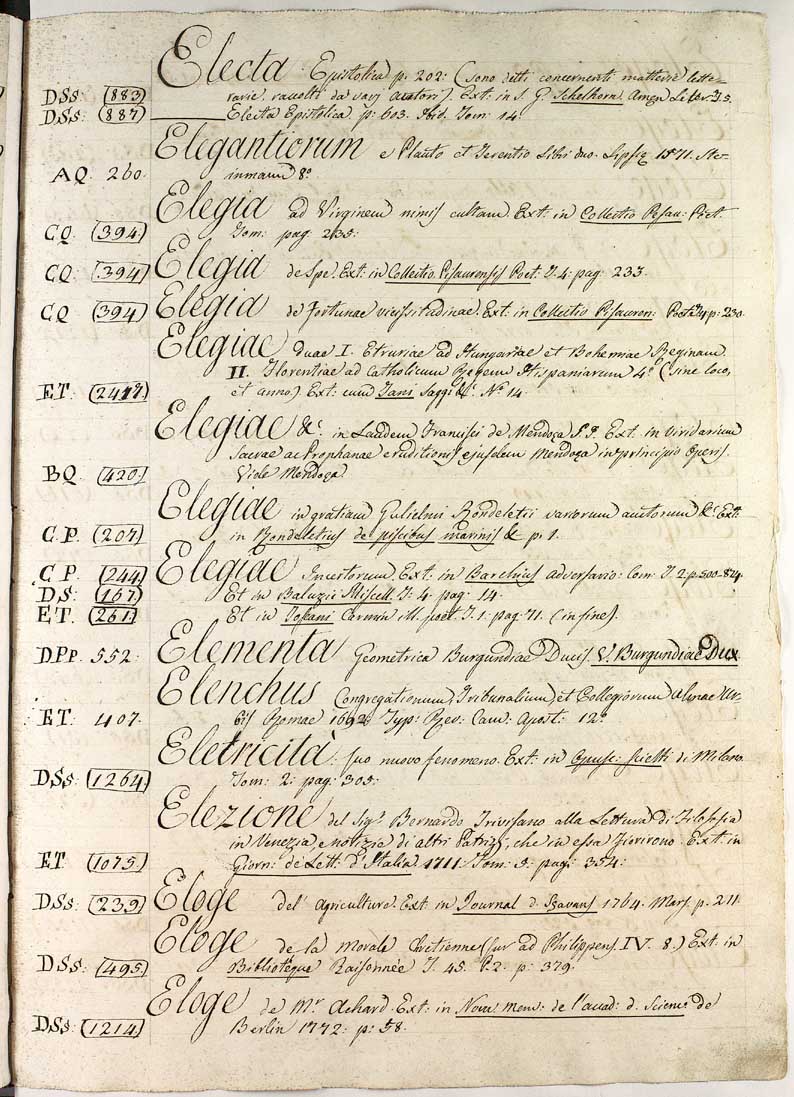 Electa Epistolica p. 202: (sono detti concernenti matterie lette-
DSs: (883) rarie raccolti da varj autori). Ext: in J. G. Schelhorn Amœn Liter T. 5.
DSs: (887) ———— Electa Epistolica p: 603. Ibid. Tom: 14.
Elegantiorum e Plauto et Terentio Libri duo. Lipsiæ 1571. Ste-
AQ. 260. inmann 8.º
Elegia ad Virginem nimis cultam. Ext: in Collectio Pesau: Poet.
CQ. (394) Tom: pag: 235:
CQ. (394) Elegia de Spe. Ext. in Collectio Pisaurensis Poet: T. 4: pag: 233.
CQ (394) Elegia de Fortunae vicissitudinae. Ext: in Collectio Pisauren: Poet. T. 4 p: 230.
Elegiae duae I. Etruriae ad Hungariae et Bohemiae Reginam
II. Florentiae ad Catholicum Regem Hispaniarum 4.º (sine loco,
ET. (2417) et anno.) Ext: cum Jani Saggi &c. Nº 14.
Elegiae &c. in Laudem Francisci de Mendoça S. J. Ext. in Viridarium
Sacrae ac Prophanae eruditionis ejusdem Mendoça in principio Operis.
BQ. (420) Vide Mendoça.
Elegiae in gratiam Gulielmi Rondeletii variorum auctorum &c. Ext:
C.P. (207) in Rondeletius de piscibus marinis & p. 1.
C.P. (244) Elegiae Incertorum. Ext. in Barthius adversario: Com: T. 2: p: 500-824.
DS: (167) Et in Baluzii Miscell. T: 4. pag: 14.
ET. (261) Et in Toscani Carmin ill. poet. T. 1: pag: 71. (in fine).
DPp. 552. Elementa Geometrica Burgundiae Ducis. V. Burgundiae Dux
Elenchus Congregationum, Tribunalium, et Collegiorum Almae Ur-
ET. 407. bis Romae 1692 Typ: Rev: Cam: Apost: 12º
Eletricità: suo nuovo fenomeno. Ext: in Opusc: scielti di Milano
DSs: (1264) Tom: 2: pag: 305:
Elezione del Sigr. Bernardo Trivisano alla Lettura di Filosofia
in Venezia, e notizie di altri Patrizj, che in essa fiorirono. Ext: in
ET. (1075) Giorn: de' Lett: d'Italia 1711: Tom: 5: pag: 354:
DSs: (239) Eloge del' agriculture. Ext: in Journal d. Sçavans 1764. Mars. p. 211.
Eloge de la Morale Chretienne (sur ad Philippens. IV. 8.) Ext: in
DSs: (495) Bibliotèque Raisonnèe T. 45. P. 2. p: 379.
Eloge de Mr. Achard. Ext: in Nouv mem: de l'acad: d. Scienes de
DSs: (1214) Berlin 1772: p: 58.